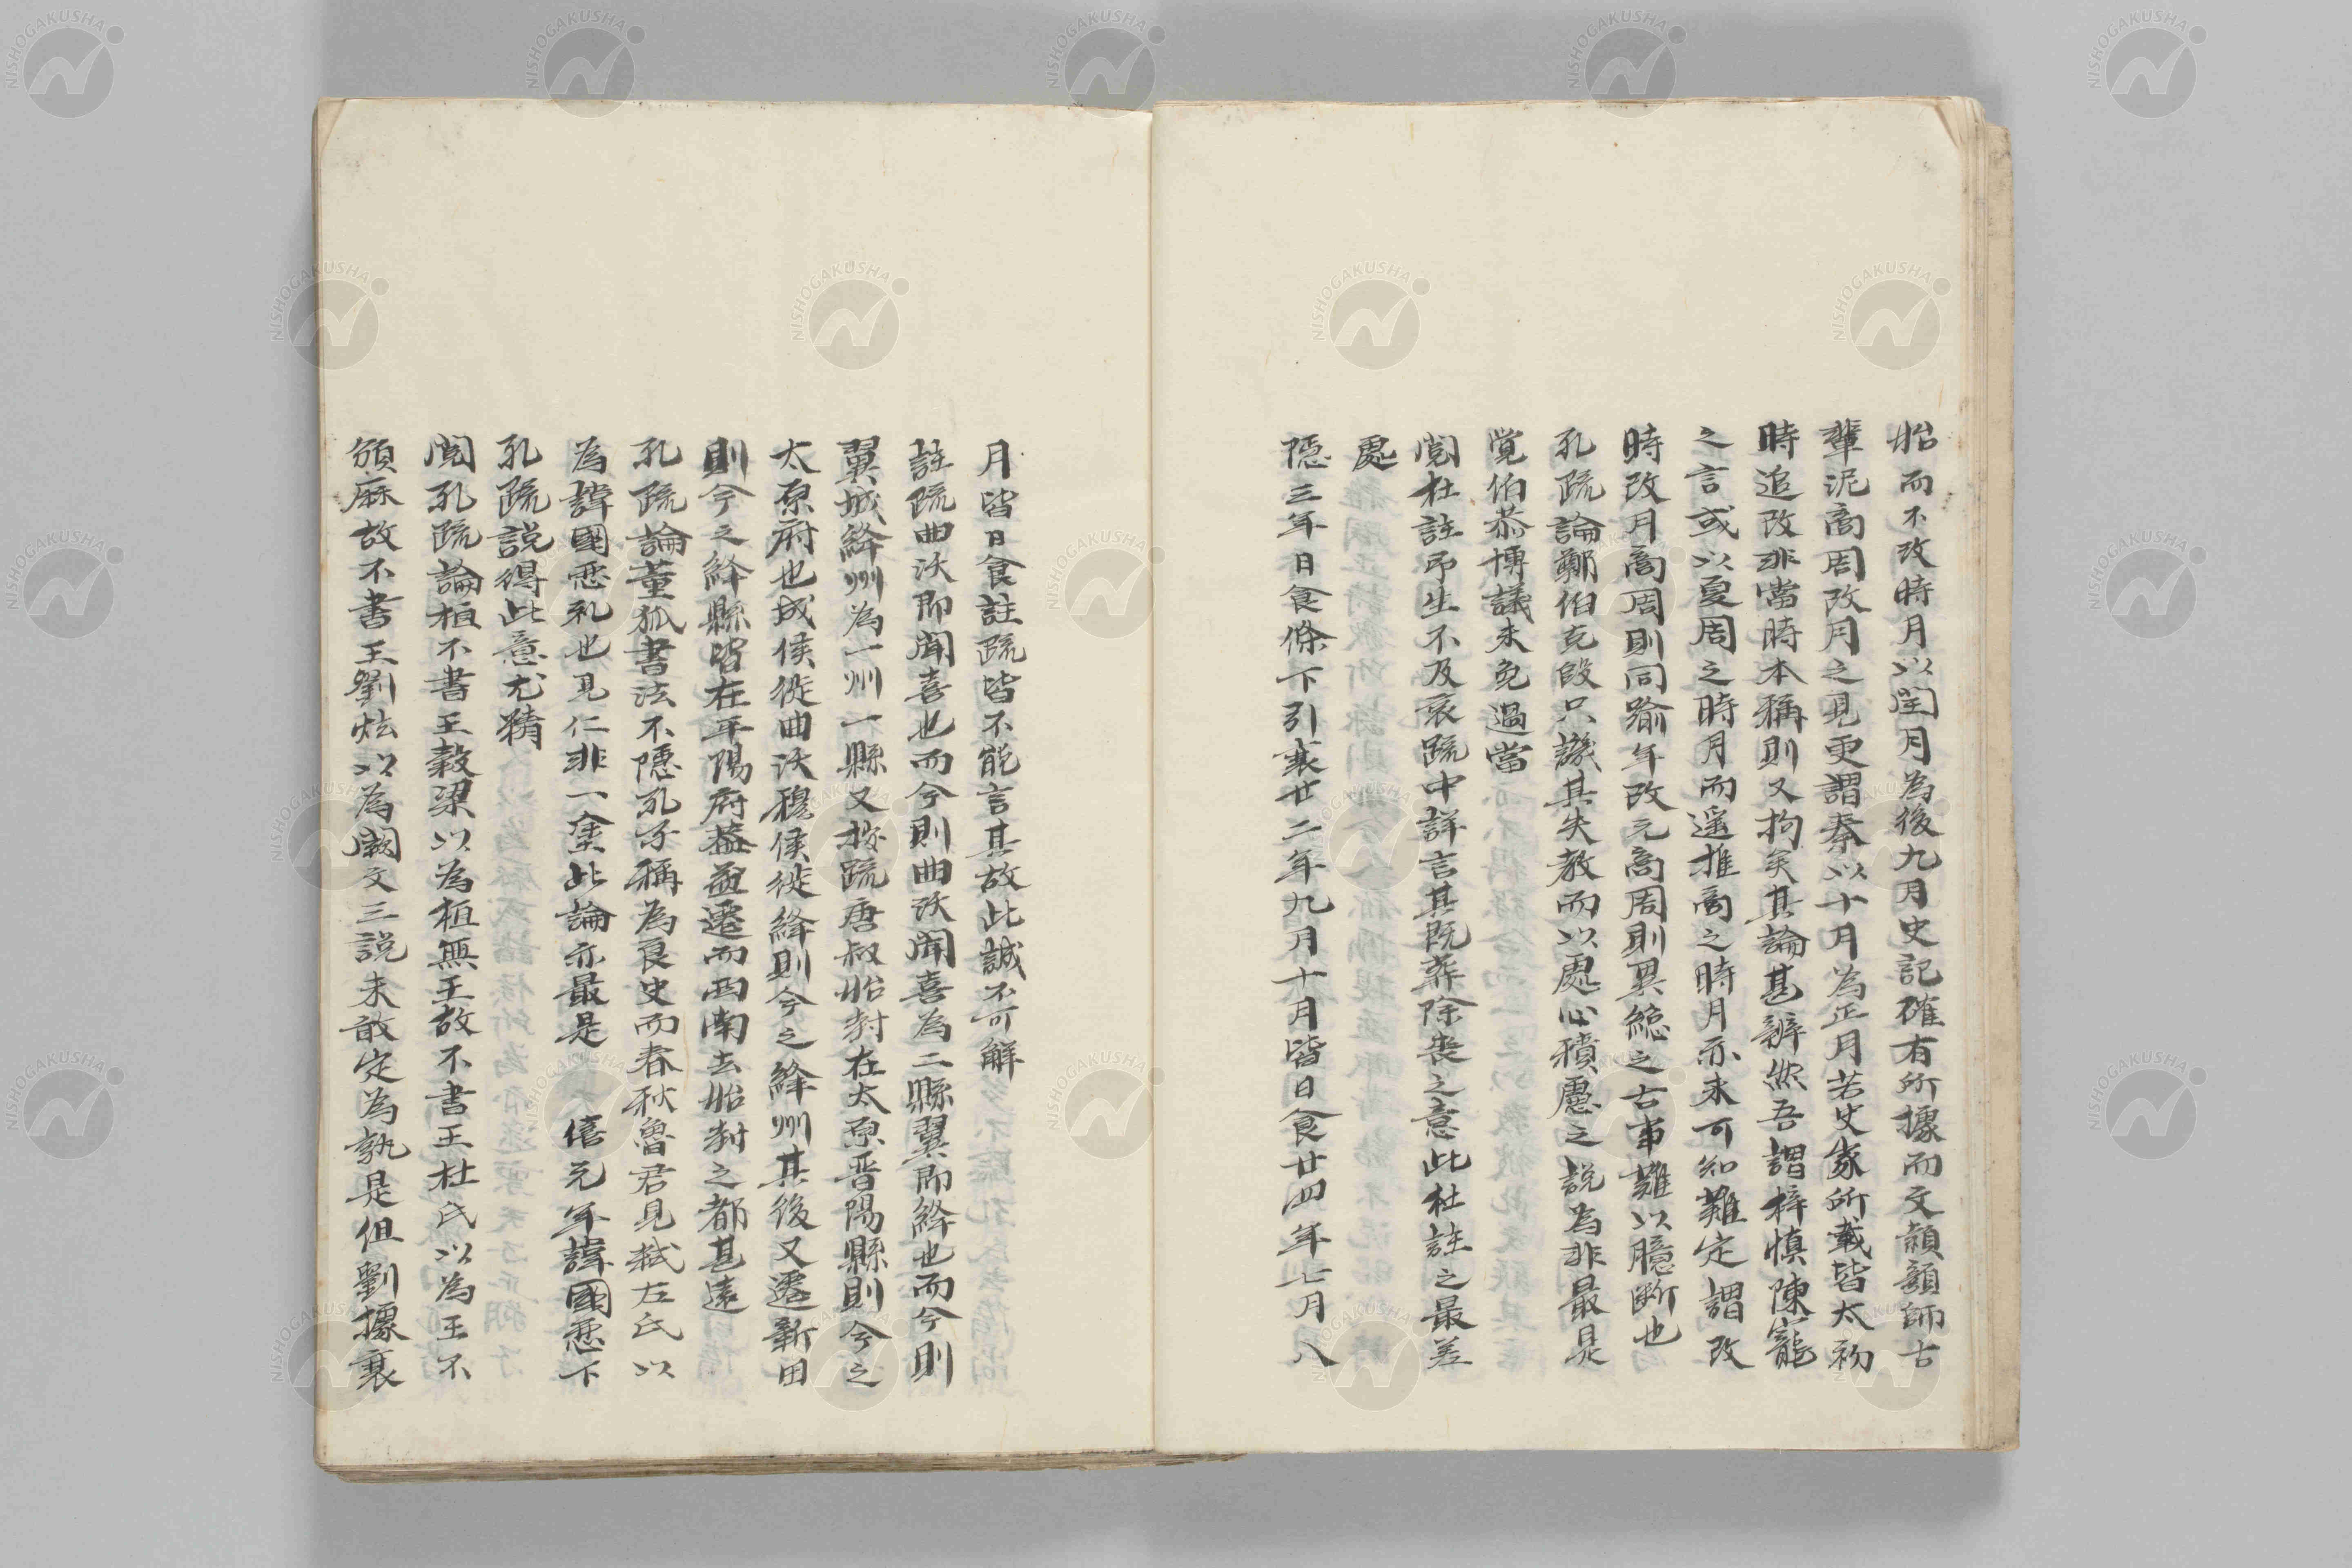 始而不改時月以閏月為後九月史記確有所據而文頴顔師古
輩泥商周改月之見更謂秦以十月為正月若史家所載皆太初
時追改非當時本稱則又拘矣其論甚辨然吾謂梓慎陳寵
之言或以夏周之時月而遥推商之時月亦未可知難定謂改
時改月商周則同踰年改元商周則異總之古事難以臆斷也
孔疏論鄭伯克段只譏其失教而以處心積慮之說為非最是
覺伯恭博議未免過當
閲杜註弔生不及哀疏中詳言其既葬除喪之意此杜註之最差
處
隱三年日食條下引襄廿二年九月十月皆日食廿四年七月八
月皆日食註疏皆不能言其故此誠不可解
註疏曲沃即聞喜也而今則曲沃聞喜為二縣翼即絳也而今則
翼城絳州為一州一縣又按疏唐叔始封在太原晋陽縣則今之
太原府也成侯徙曲沃穆侯徙絳則今之絳州其後又遷新田
則今之絳縣皆在平陽府葢益遷而西南去始封之都甚遠
孔疏論董狐書法不隱孔子稱為良史而春秋魯君見弒左氏以
為諱國惡礼也見仁非一塗此論亦最是 僖元年諱國惡下
孔疏説得此意尤精
閲孔疏論桓不書王穀梁以為桓無王故不書王杜氏以為王不
頒厤故不書王劉炫以為闕文三説未敢定為孰是但劉據襄